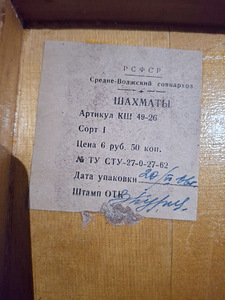 РСФСР
Средне-Волжский совнархоз
ШАХМАТЫ
Артикул КШ 49-26
Сорт I
Цена 6 руб. 50 коп.
№ ТУ СТУ-27-0-27-62
Дата упаковки 20/
Штамп ОТК